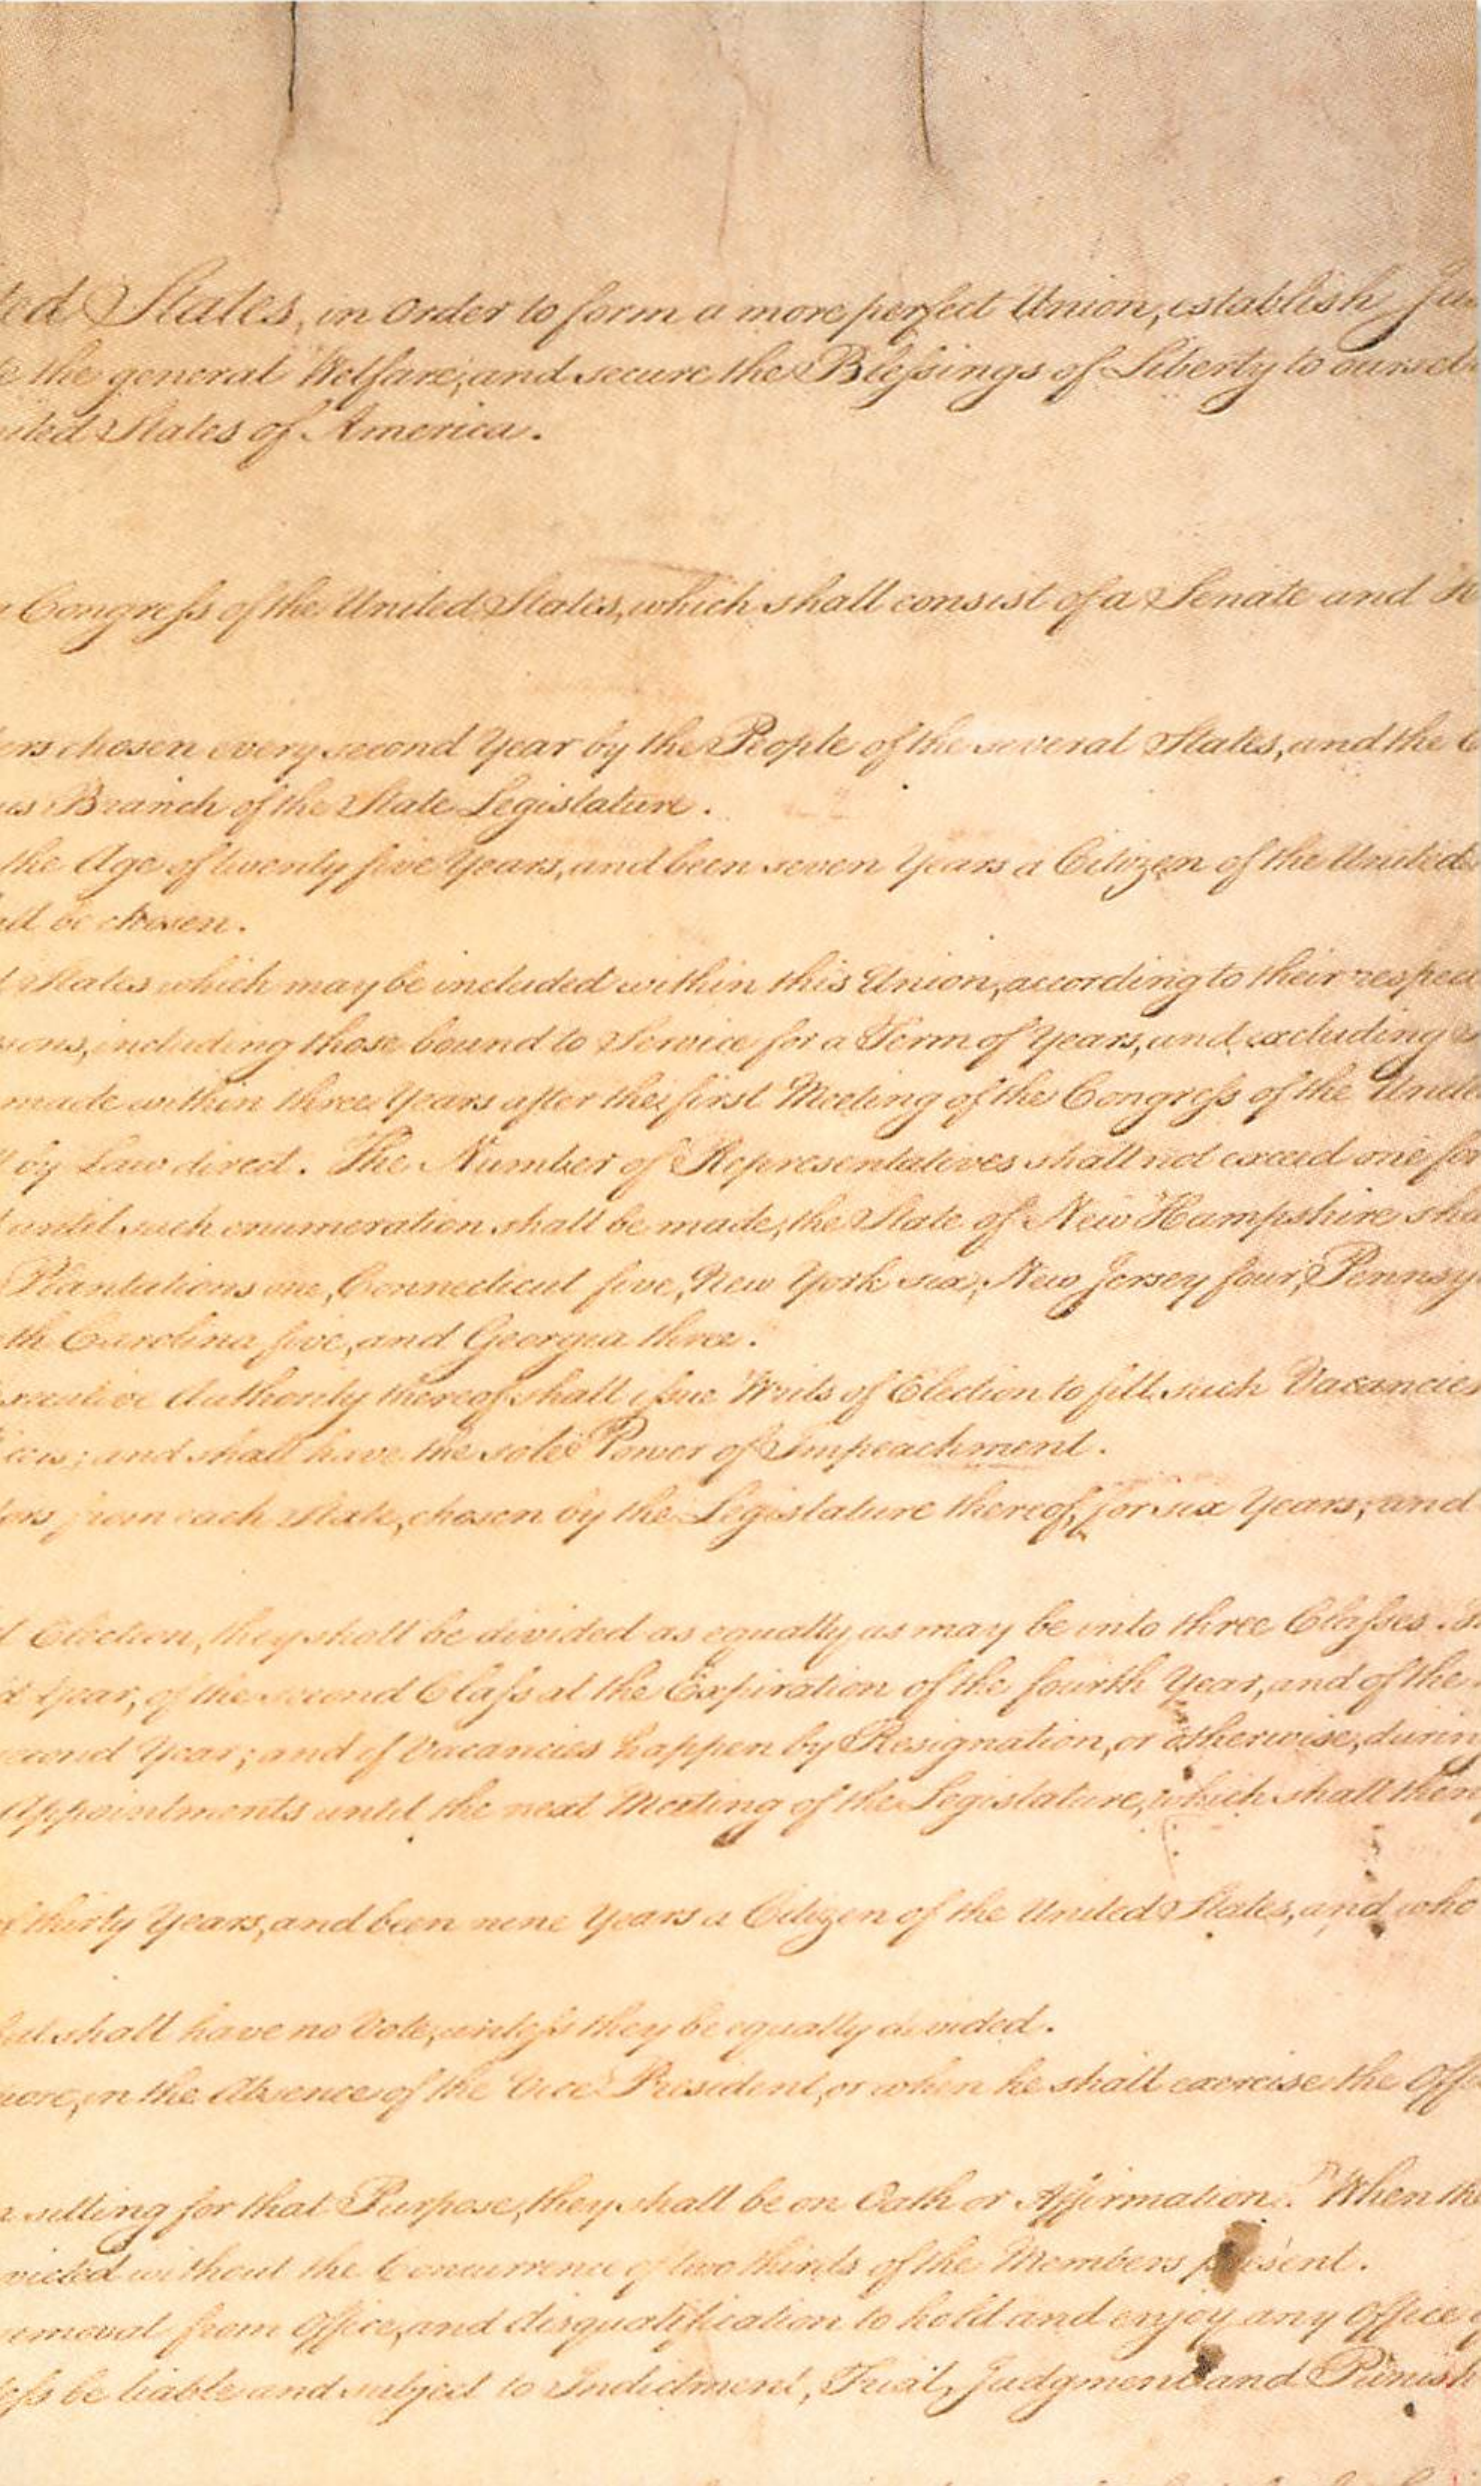 ted States, in Order to form a more perfect Union, establish Jus
e the general Welfare, and secure the Blessings of Liberty to ourselv
ited States of America.
Congress of the United States, which shall consist of a Senate and H
ers chosen every second Year by the People of the several States, and the
us Branch of the State Legislature.
the Age of twenty five Years, and been seven Years a Citizen of the United
all be chosen.
States which may be included within this Union, according to their respect
sons, including those bound to Service for a Term of Years, and excluding
made within three Years after the first Meeting of the Congress of the Unite
by Law direct. The Number of Representatives shall not exceed one for
until such enumeration shall be made, the State of New Hampshire sha
Plantations one, Connecticut five, New York six, New Jersey four, Pennsy
th Carolina five, and Georgia three.
xecutive Authority thereof shall issue Writs of Election to fill such Vacancies
icers; and shall have the sole Power of Impeachment.
tors from each State, chosen by the Legislature thereof, for six Years; and
t Election, they shall be divided as equally as may be into three Classes.
d Year, of the second Class at the Expiration of the fourth Year, and of the
econd Year; and if Vacancies happen by Resignation, or otherwise, during
Appointments until the next Meeting of the Legislature, which shall then
f thirty Years, and been nine Years a Citizen of the United States, and who
but shall have no Vote, unless they be equally divided.
pore, in the Absence of the Vice President, or when he shall exercise the Offi
n sitting for that Purpose, they shall be on Oath or Affirmation. When the
nvicted without the Concurrence of two thirds of the Members present.
emoval from Office, and disqualification to hold and enjoy any Office
less be liable and subject to Indictment, Trial, Judgment and Punish